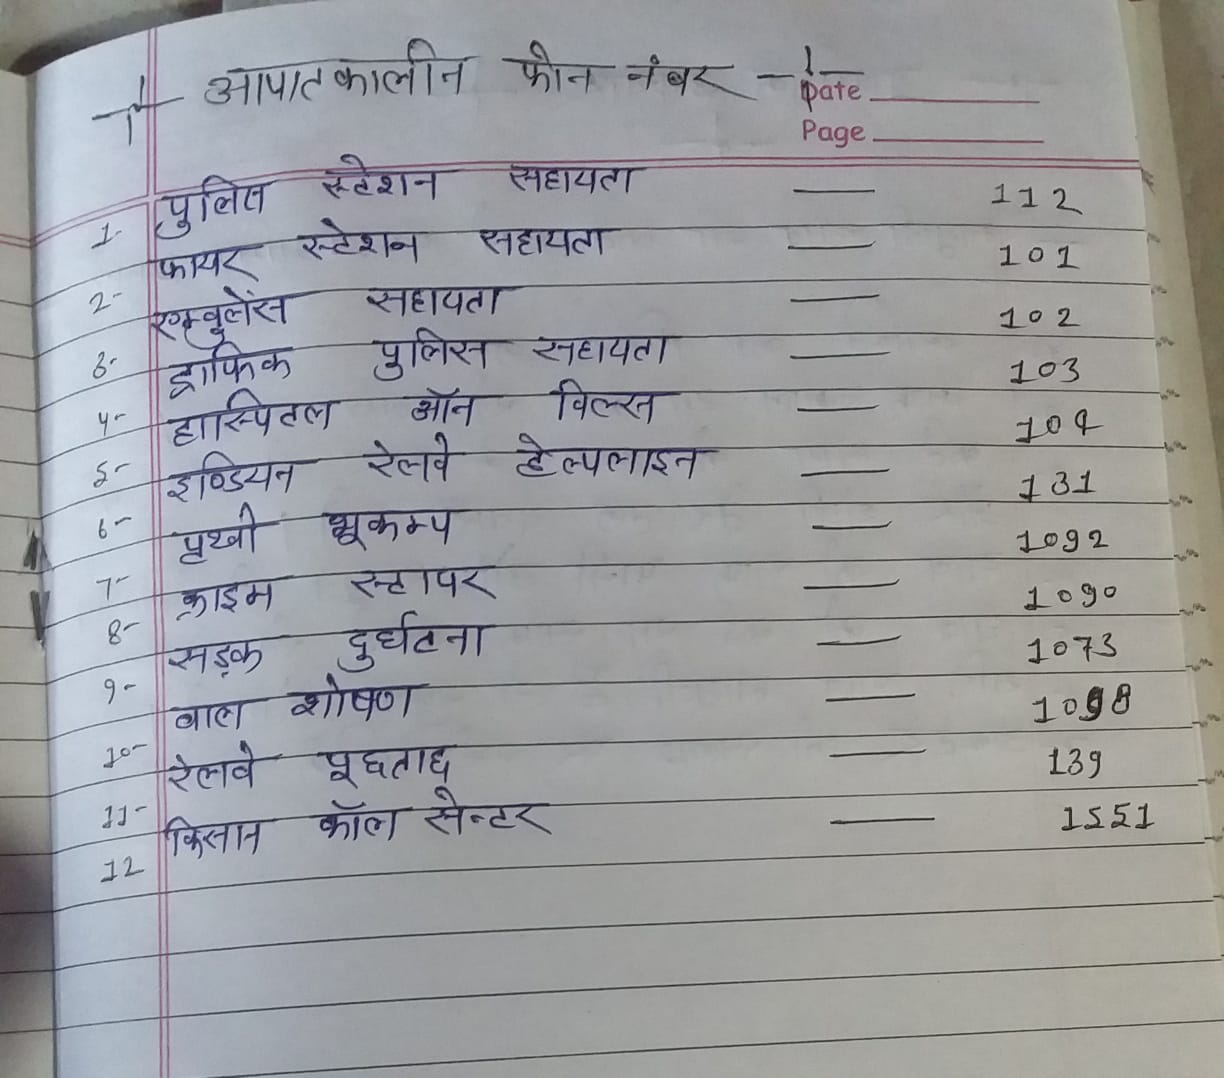 आपातकालीन फोन नंबर
Date
Page
1. पुलिस स्टेशन सहायता — 112
2- फायर स्टेशन सहायता — 101
3- एम्बुलेंस सहायता — 102
4- ट्राफिक पुलिस सहायता — 103
5- हास्पिटल ऑन विल्स — 104
6- इण्डियन रेलवे हेल्पलाइन — 131
7- पृथ्वी भूकम्प — 1092
8- क्राइम स्टापर — 1090
9- सड़क दुर्घटना — 1073
10- बाल शोषण — 1098
11- रेलवे पूछताछ — 139
12 किसान कॉल सेन्टर — 1551